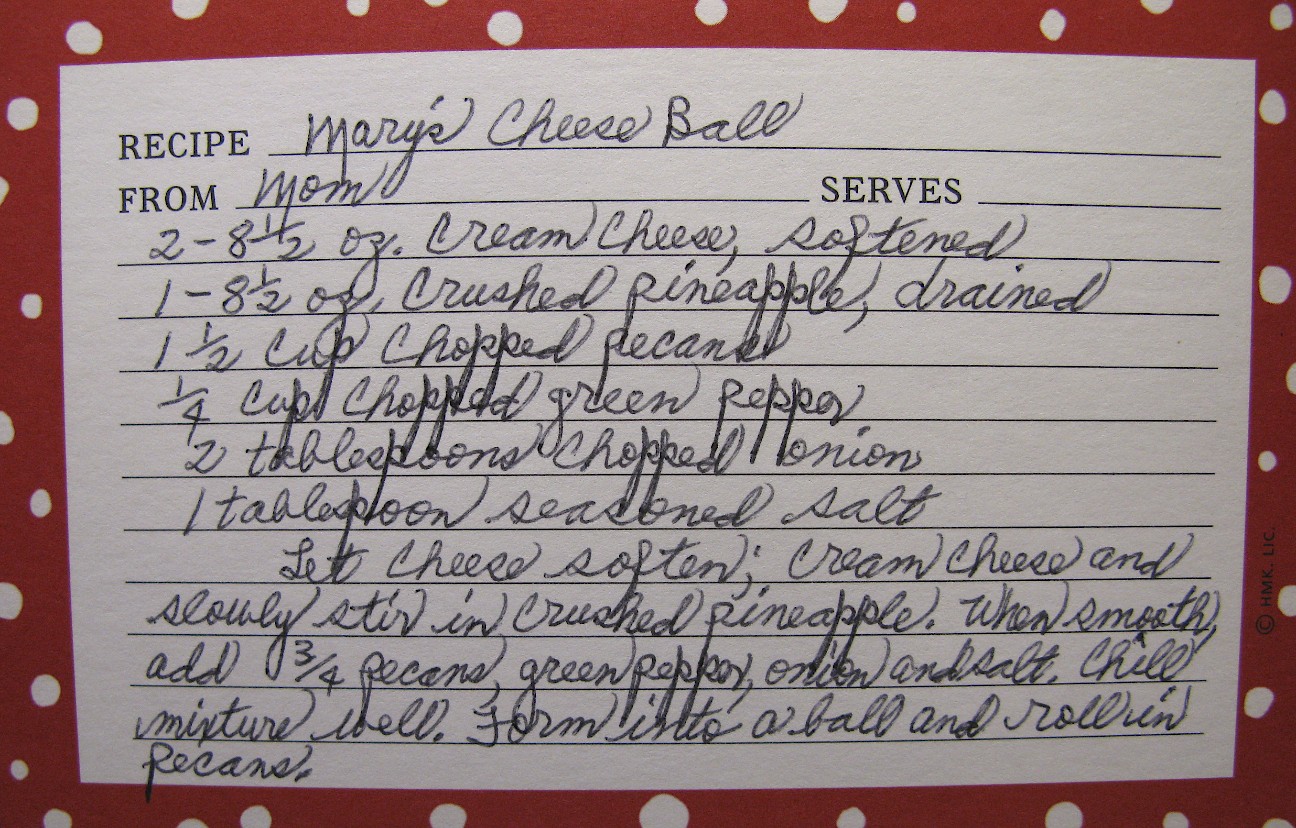 RECIPE Mary's Cheese Ball
FROM Mom SERVES
2 - 8 1/2 oz. Cream Cheese, softened
1 - 8 1/2 oz. Crushed pineapple, drained
1 1/2 Cup Chopped pecans
1/4 Cup Chopped green pepper
2 tablespoons Chopped onion
1 tablespoon seasoned salt
Let Cheese soften; Cream Cheese and
slowly stir in Crushed pineapple. When smooth,
add 3/4 pecans, green pepper, onion and salt. Chill
mixture well. Form into a ball and roll in
pecans.
© HMK. LIC.